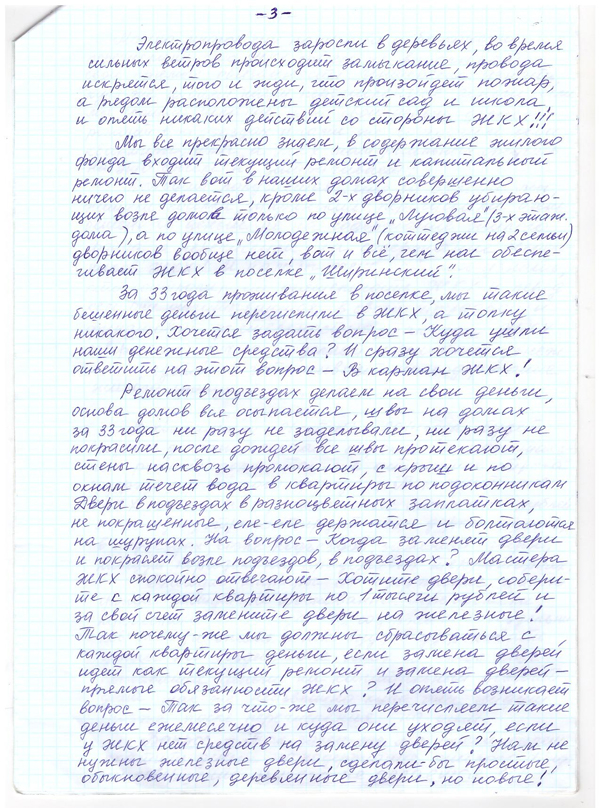 -3-
Электропровода заросли в деревьях, во время
сильных ветров происходит замыкание, провода
искрятся, того и жди, что произойдет пожар,
а рядом расположены детский сад и школа,
и опять никаких действий со стороны ЖКХ!!!
Мы все прекрасно знаем, в содержание жилого
фонда входит текущий ремонт и капитальный
ремонт. Так вот в наших домах совершенно
ничего не делается, кроме 2-х дворников убираю-
щих возле домов только по улице „Луговая" (3-х этаж.
дома), а по улице „Молодежная" (коттеджи на 2 семьи)
дворников вообще нет, вот и всё, чем нас обеспе-
чивает ЖКХ в поселке „Ширинский".
За 33 года проживания в поселке, мы такие
бешенные деньги перечислили в ЖКХ, а толку
никакого. Хочется задать вопрос - Куда ушли
наши денежные средства? И сразу хочется
ответить на этот вопрос - В карман ЖКХ!
Ремонт в подъездах делаем на свои деньги,
основа домов вся осыпается, швы на домах
за 33 года ни разу не заделывали, ни разу не
покрасили, после дождей все швы протекают,
стены насквозь промокают, с крыш и по
окнам течет вода в квартиры по подоконникам
Двери в подъездах в разноцветных заплатках,
не покрашенные, еле-еле держатся и болтаются
на шурупах. На вопрос - Когда заменят двери
и покрасят возле подъездов, в подъездах? Мастера
ЖКХ спокойно отвечают - Хотите двери, собери-
те с каждой квартиры по 1 тысячи рублей и
за свой счет замените двери на железные!
Так почему-же мы должны сбрасываться с
каждой квартиры деньги, если замена дверей
идет как текущий ремонт и замена дверей -
прямые обязанности ЖКХ? И опять возникает
вопрос - Так за что-же мы перечисляем такие
деньги ежемесячно и куда они уходят, если
у ЖКХ нет средств на замену дверей? Нам не
нужны железные двери, сделали-бы простые,
обыкновенные, деревянные двери, но новые!